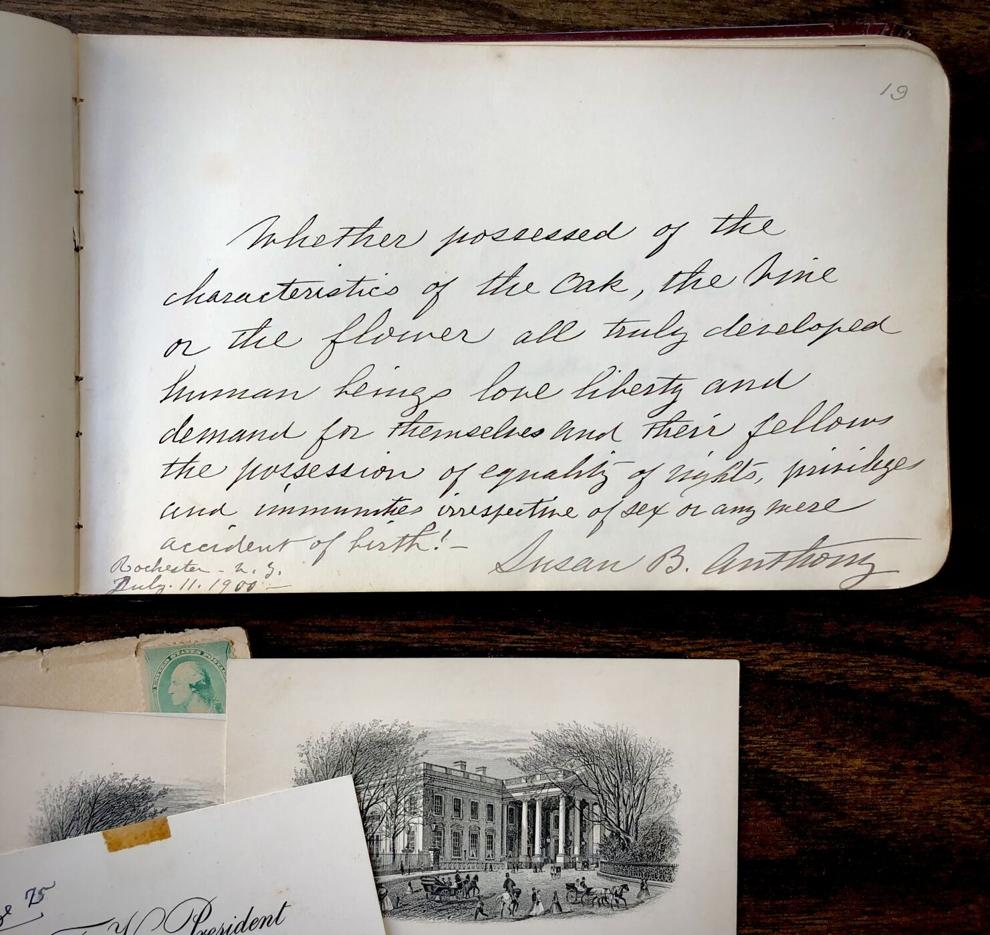 19
Whether possessed of the
characteristics of the Oak, the Vine
or the flower all truly developed
human beings love liberty and
demand for themselves and their fellows
the possession of equality of rights, privileges
and immunities irrespective of sex or any mere
accident of birth! –
Susan B. Anthony
Rochester – N. Y.
July. 11. 1900 –
UNITED STATES POSTAGE
75
President